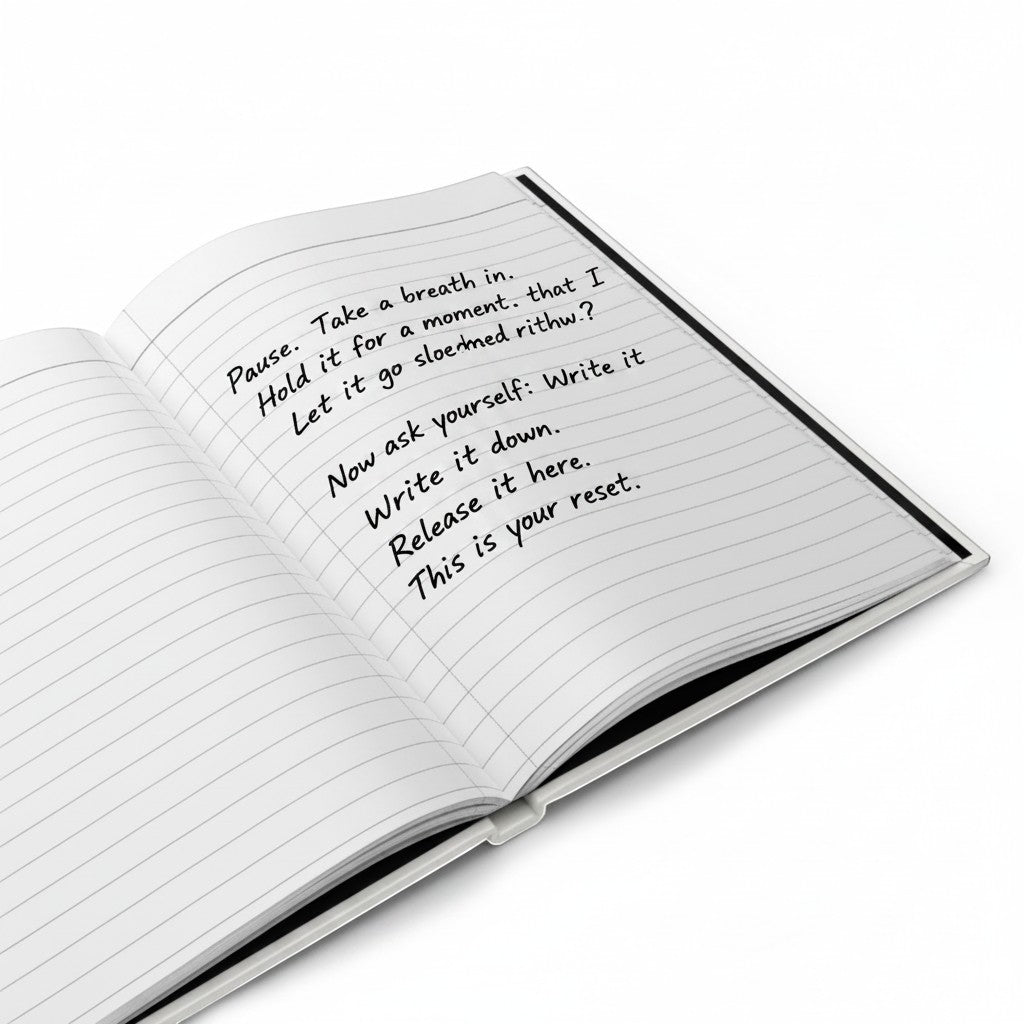 Pause. Take a breath in.
Hold it for a moment. that I
Let it go
Now ask yourself: Write it
Write it down.
Release it here.
This is your reset.